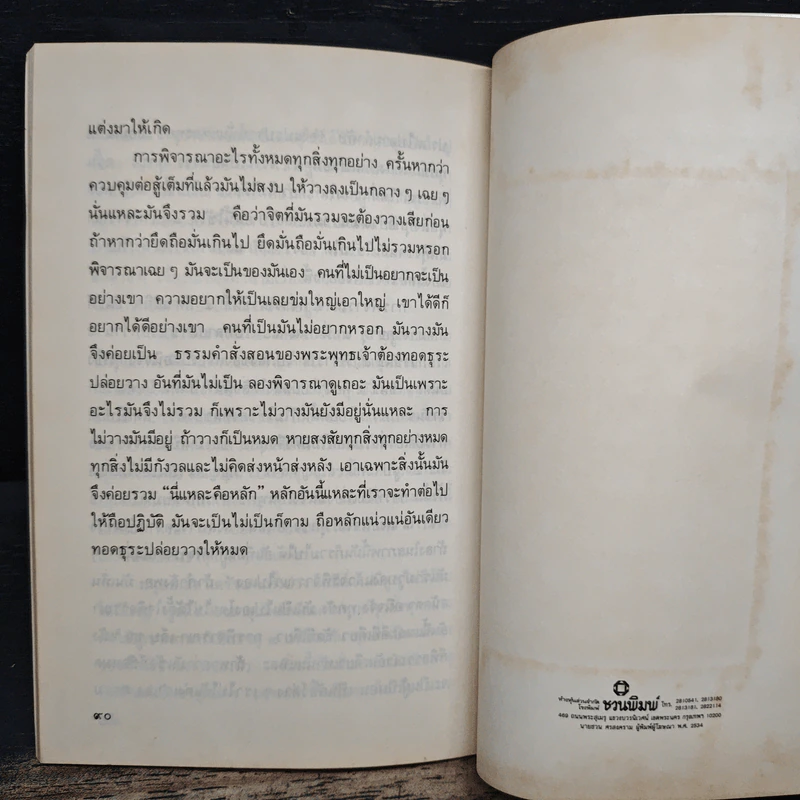 แต่งมาให้เกิด
การพิจารณาอะไรทั้งหมดทุกสิ่งทุกอย่าง ครั้นหากว่า
ควบคุมต่อสู้เต็มที่แล้วมันไม่สงบ ให้วางลงเป็นกลาง ๆ เฉย ๆ
นั่นแหละมันจึงรวม คือว่าจิตที่มันรวมจะต้องวางเสียก่อน
ถ้าหากว่ายึดถือมั่นเกินไป ยึดมั่นถือมั่นเกินไปไม่รวมหรอก
พิจารณาเฉย ๆ มันจะเป็นของมันเอง คนที่ไม่เป็นอยากจะเป็น
อย่างเขา ความอยากให้เป็นเลยข่มใหญ่เอาใหญ่ เขาได้ดีก็
อยากได้ดีอย่างเขา คนที่เป็นมันไม่อยากหรอก มันวางมัน
จึงค่อยเป็น ธรรมคำสั่งสอนของพระพุทธเจ้าต้องทอดธุระ
ปล่อยวาง อันที่มันไม่เป็น ลองพิจารณาดูเถอะ มันเป็นเพราะ
อะไรมันจึงไม่รวม ก็เพราะไม่วางมันยังมีอยู่นั่นแหละ การ
ไม่วางมันมีอยู่ ถ้าวางก็เป็นหมด หายสงสัยทุกสิ่งทุกอย่างหมด
ทุกสิ่งไม่มีกังวลและไม่คิดส่งหน้าส่งหลัง เอาเฉพาะสิ่งนั้นมัน
จึงค่อยรวม “นี่แหละคือหลัก” หลักอันนี้แหละที่เราจะทำต่อไป
ให้ถือปฏิบัติ มันจะเป็นไม่เป็นก็ตาม ถือหลักแน่วแน่อันเดียว
ทอดธุระปล่อยวางให้หมด
๙๐
ห้างหุ้นส่วนจำกัด โรงพิมพ์ ชวนพิมพ์ โทร. 2810541, 2813180
2813181, 2822114
469 ถนนพระสุเมรุ แขวงบวรนิเวศน์ เขตพระนคร กรุงเทพฯ 10200
นายชวน ศรสงคราม ผู้พิมพ์ผู้โฆษณา พ.ศ. 2534